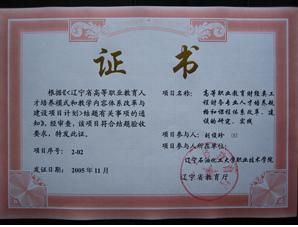 证 书
根据《<辽宁省高等职业教育人
才培养模式和教学内容体系改革与
建设项目计划>结题有关事项的通
知》,经审查,该项目符合结题验收
要求,特发此证。
项目序号: 2-02
发证日期: 2005年11月
项目名称: 高等职业教育财经类工
程财务专业人才培养规
格和课程体系改革、建
设的研究、实践
项目参与人: 刘俊珍
项目参与人所在单位:
辽宁石油化工大学职业技术学院
辽宁省教育厅